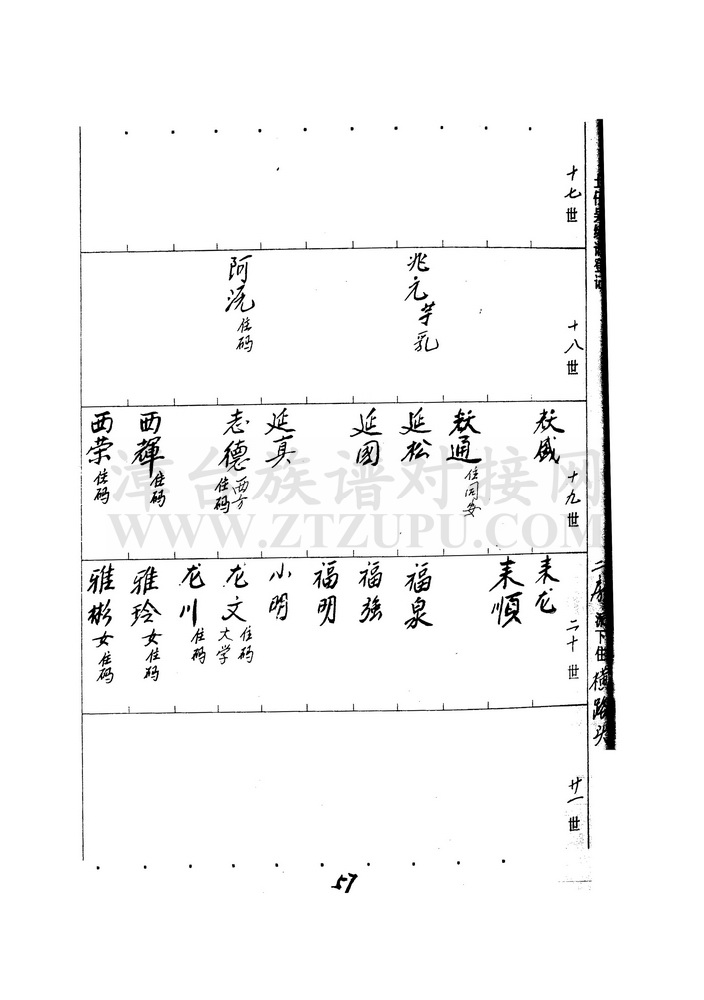 十七世
十八世
兆元 芋乳
阿流 住码
十九世
敖盛
敖通 住同安
延松
延國
延真
志德 西方 住码
西輝 住码
西荣 住码
二十世
来龙
来順
福泉
福強
福明
小明
龙文 住码 大学
龙川 住码
雅玲 女 住码
雅彬 女 住码
廿一世
二房 派下住 横路头
57
漳台族谱对接网
WWW.ZTZUPU.COM